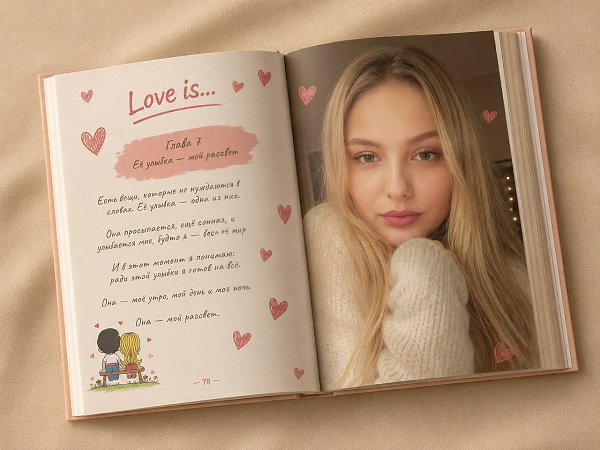 Love is...
Глава 7
Её улыбка — мой рассвет
Есть вещи, которые не нуждаются в
словах. Её улыбка — одна из них.
Она просыпается, ещё сонная, и
улыбается мне, будто я — весь её мир
И в этот момент я понимаю:
ради этой улыбки я готов на всё.
Она — моё утро, мой день и моя ночь.
Она — мой рассвет.
— 78 —